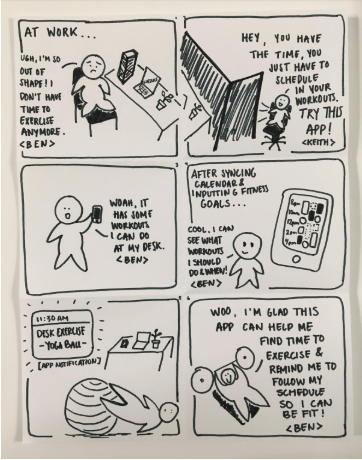 AT WORK...
UGH, I'M SO
OUT OF
SHAPE! I
DON'T HAVE
TIME TO
EXERCISE
ANYMORE.
<BEN>
HEY, YOU HAVE
THE TIME, YOU
JUST HAVE TO
SCHEDULE
IN YOUR
WORKOUTS.
TRY THIS
APP!
<KEITH>
WOAH, IT
HAS SOME
WORKOUTS
I CAN DO
AT MY DESK.
<BEN>
AFTER SYNCING
CALENDAR &
INPUTTING FITNESS
GOALS...
COOL, I CAN
SEE WHAT
WORKOUTS
I SHOULD
DO & WHEN!
<BEN>
11:30 AM
DESK EXERCISE
-YOGA BALL-
[APP NOTIFICATION]
WOO, I'M GLAD THIS
APP CAN HELP ME
FIND TIME TO
EXERCISE &
REMIND ME TO
FOLLOW MY
SCHEDULE
SO I CAN
BE FIT!
<BEN>